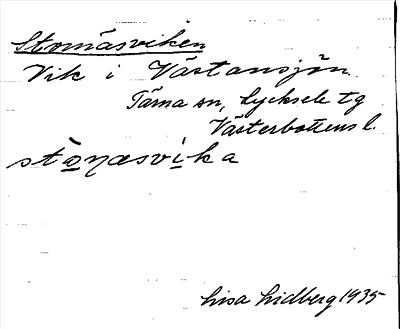 Stomäsviken
Vik i Västansjön
Tärna sn, Lycksele tg
Västerbottens l.
Lisa Lidberg 1935